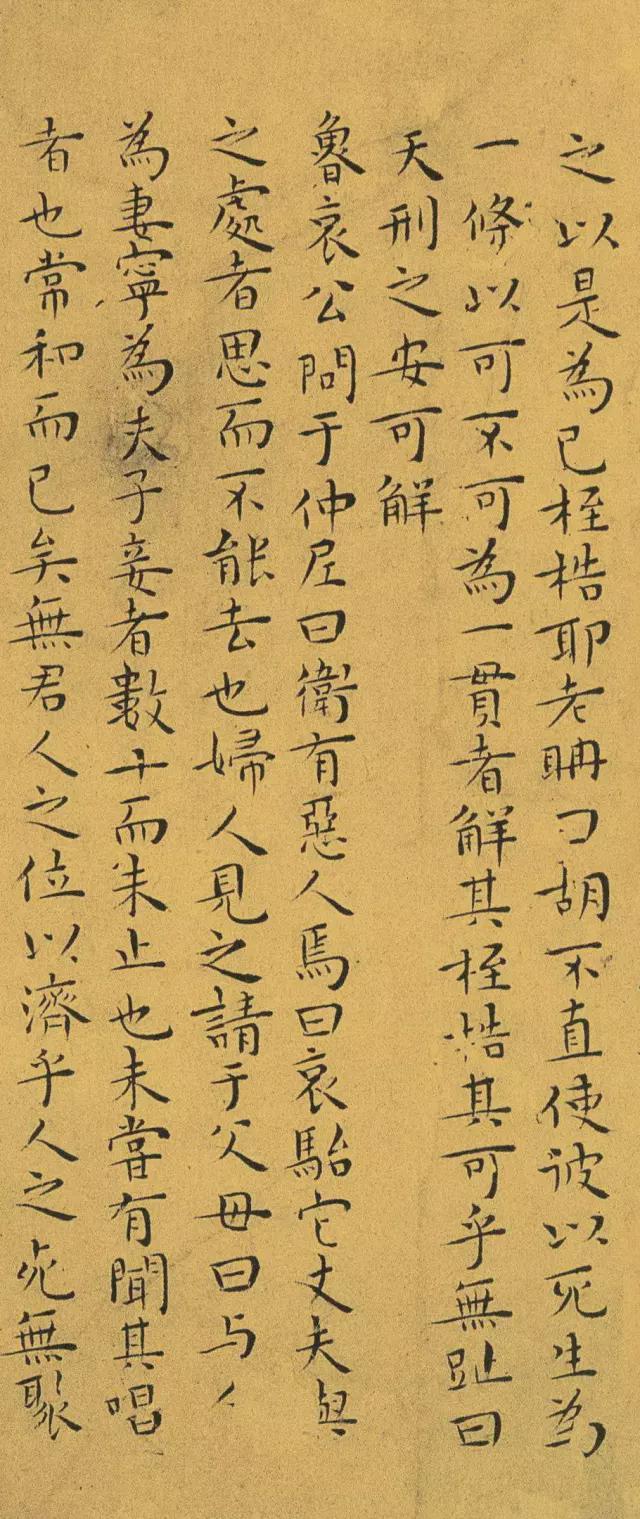 之以是為已桎梏耶老聃曰胡不直使彼以死生為
一條以可不可為一貫者解其桎梏其可乎無趾曰
天刑之安可解
魯哀公問于仲尼曰衛有惡人焉曰哀駘它丈夫與
之處者思而不能去也婦人見之請于父母曰与人
為妻寧為夫子妾者數十而未止也未嘗有聞其唱
者也常和而已矣無君人之位以濟乎人之死無聚